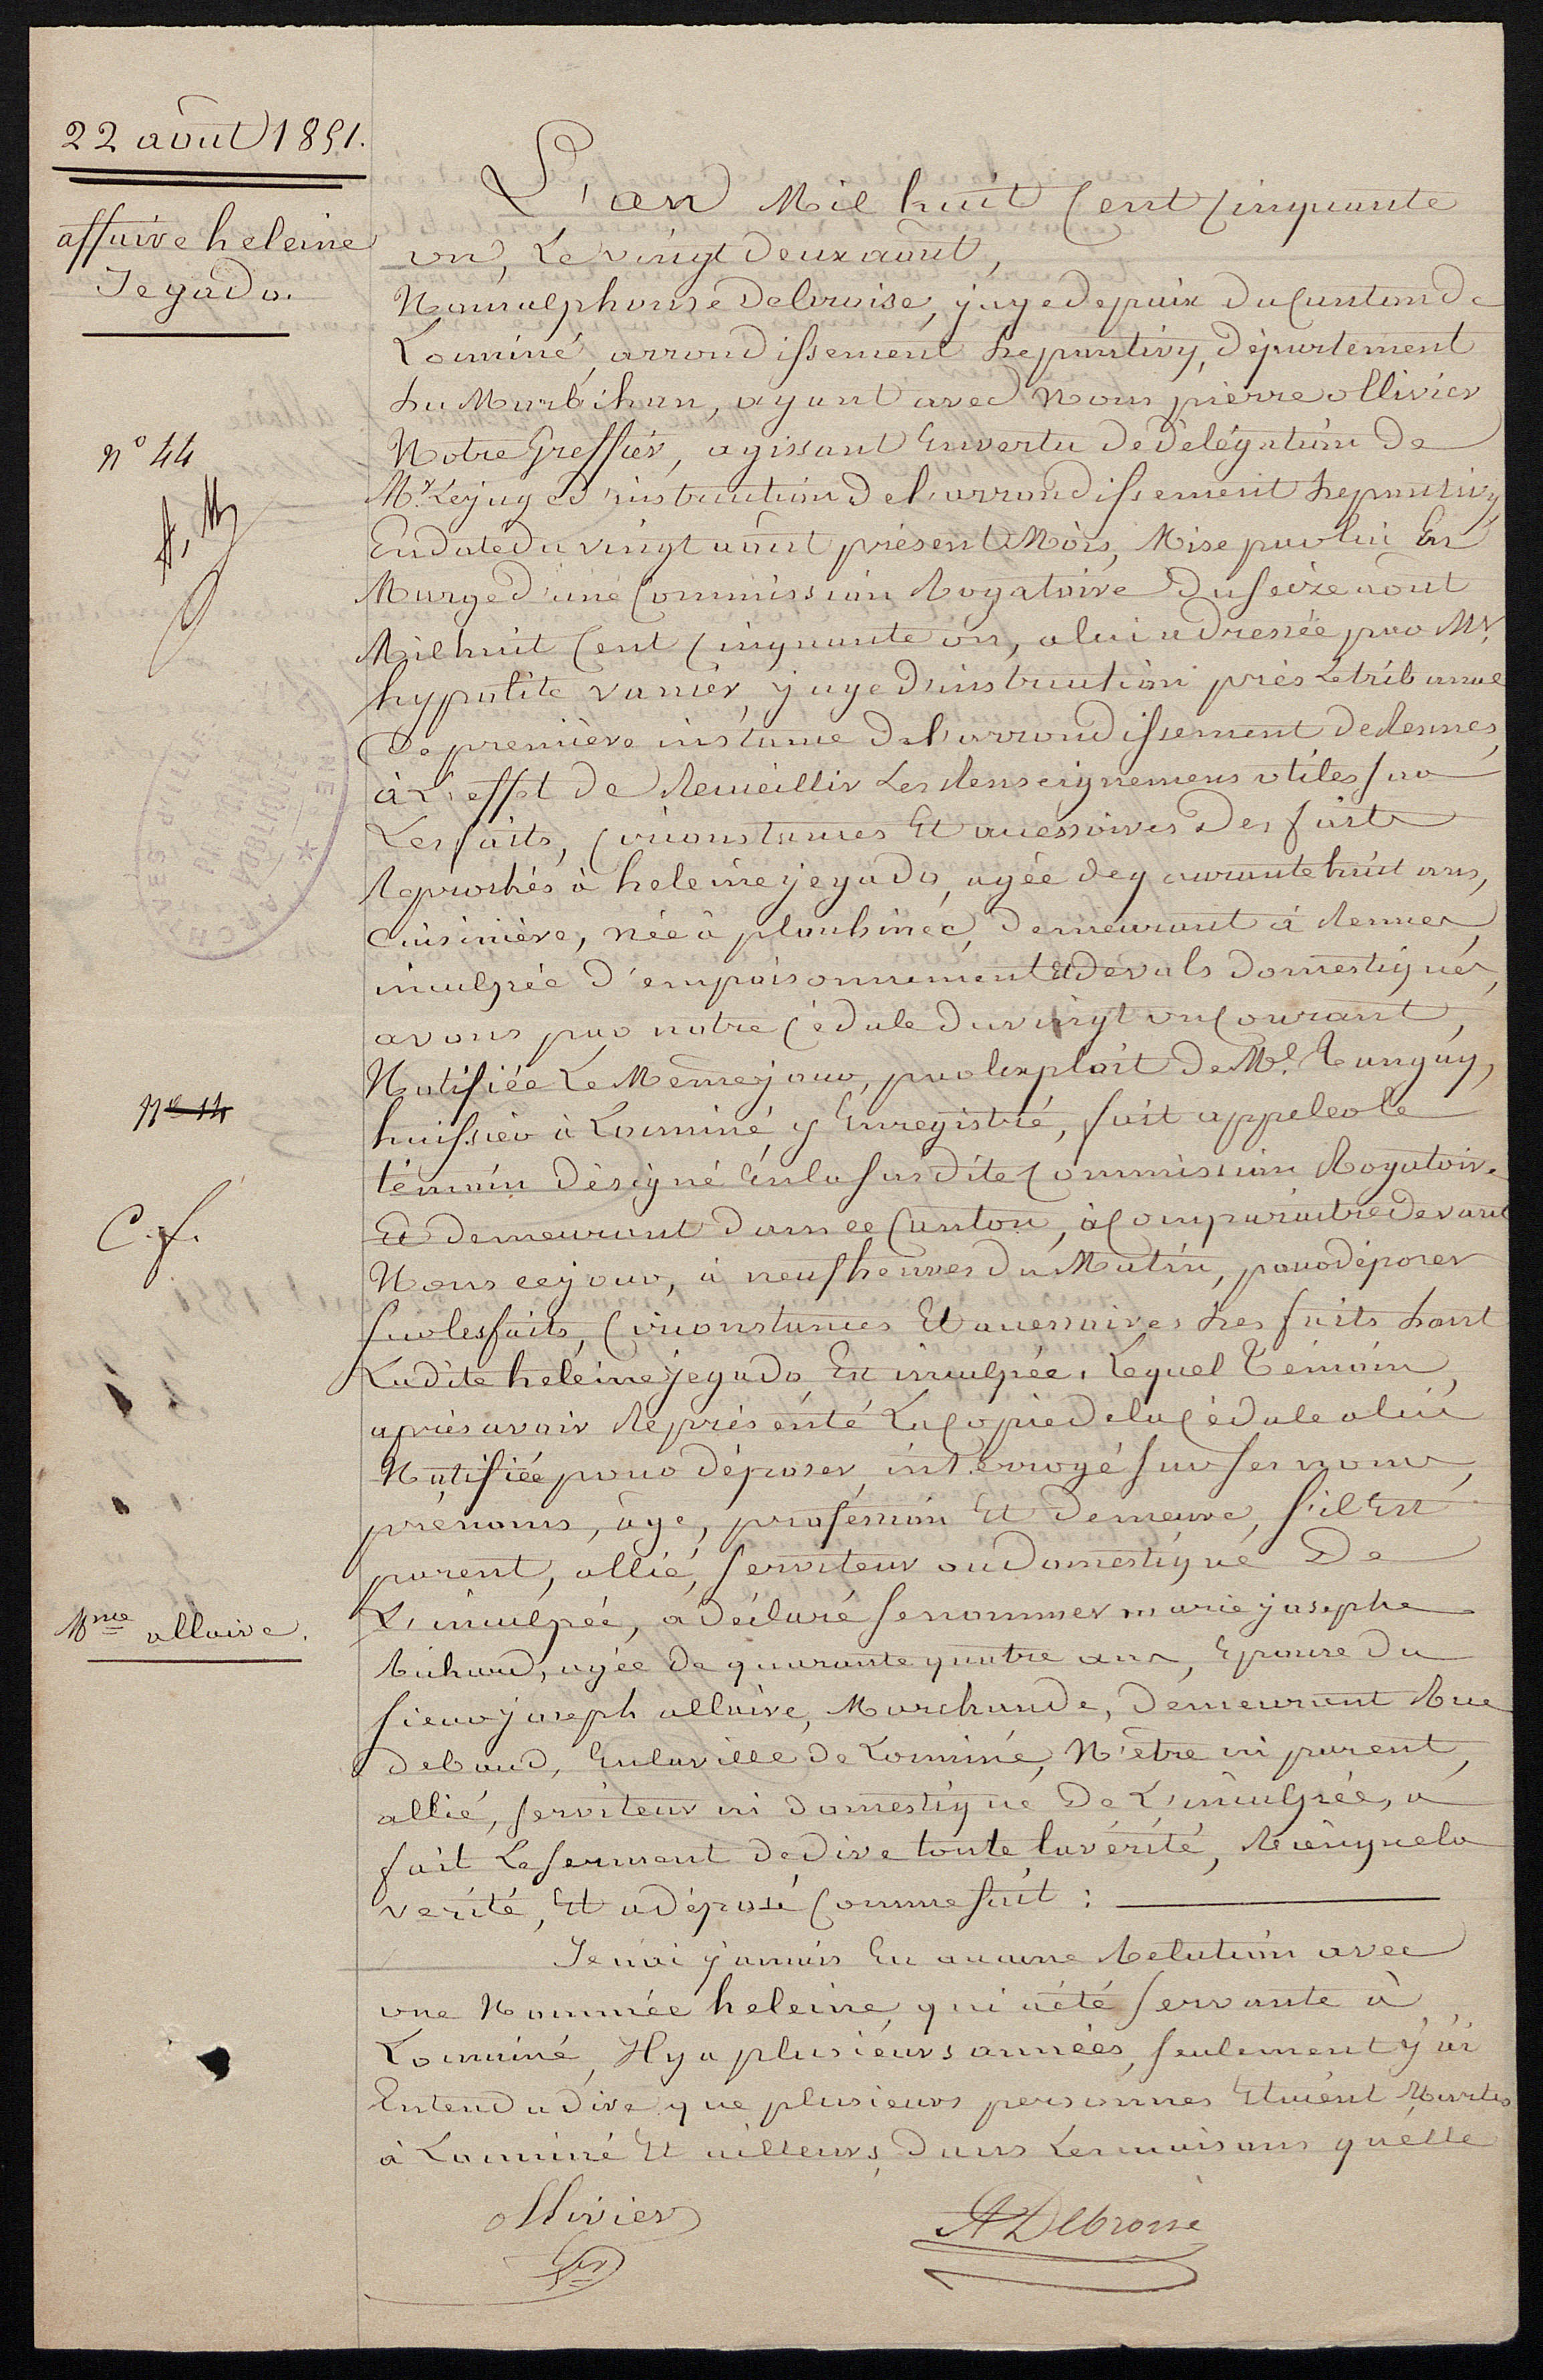 22 août 1851.
affaire heleine
Jegado.
n° 44
n° 14
C. f.
Mme allaire.
L'an Mil huit Cent Cinquante
un, Le vingt deux août,
Nous alphonse Debroise, juge de paix du Canton de
Locminé, arrondissement de pontivy, département
du Morbihan, ayant avec Nous pierre ollivier
Notre Greffier, agissant En vertu de délégation de
Mr. Le juge d'instruction de l'arrondissement de pontivy,
En date du vingt août présent Mois, Mise par lui En
Marge d'une Commission Rogatoire du seize août
Mil huit Cent Cinquante un, a lui adressée par Mr.
hypolite vanier, juge d'instruction près Le tribunal
De première instance De l'arrondissement de Rennes,
à L'effet de Recueillir Les Renseignemens utiles sur
Les faits, Circonstances Et accessoires Des faits
Reprochés à heleine jegado, agée de quarante huit ans,
Cuisinière, née à plouhinec, demeurant à Rennes,
inculpée d'empoisonnement Et de vols Domestiques,
avons par notre Cédule du vingt un Courant,
Notifiée Le Même jour, par Exploit de Me. Tanguy,
huissier à Locminé, y Enregistré, fait appeler le
témoin désigné En la susdite Commission Rogatoire
Et demeurant dans ce Canton, à Comparaitre devant
Nous ce jour, à neuf heures du Matin, pour déposer
sur les faits, Circonstances Et accessoires des faits dont
Ladite heleine jegado Est inculpée. Lequel Témoin,
après avoir Représenté La Copie de la Cédule a lui
Notifiée pour déposer, interrogé sur ses noms,
prénoms, âge, profession Et Demeure, s'il Est
parent, allié, serviteur ou domestique De
L'inculpée, a déclaré se nommer marie josephe
Richard, agée de quarante quatre ans, Epouse du
sieur joseph allaire, Marchande, demeurant Rue
de baud, En la ville de Locminé, N'être ni parent,
allié, serviteur ni domestique De L'inculpée, a
fait Le serment de dire toute la vérité, Rien que la
verité, Et a déposé Comme suit :
Je n'ai jamais Eu aucune Relation avec
une Nommée heleine, qui a été servante à
Locminé, Il y a plusieurs années, seulement j'ai
Entendu dire que plusieurs personnes Etaient Mortes
à Locminé Et ailleurs, Dans Les maisons qu'elle
ollivier
A Debroise